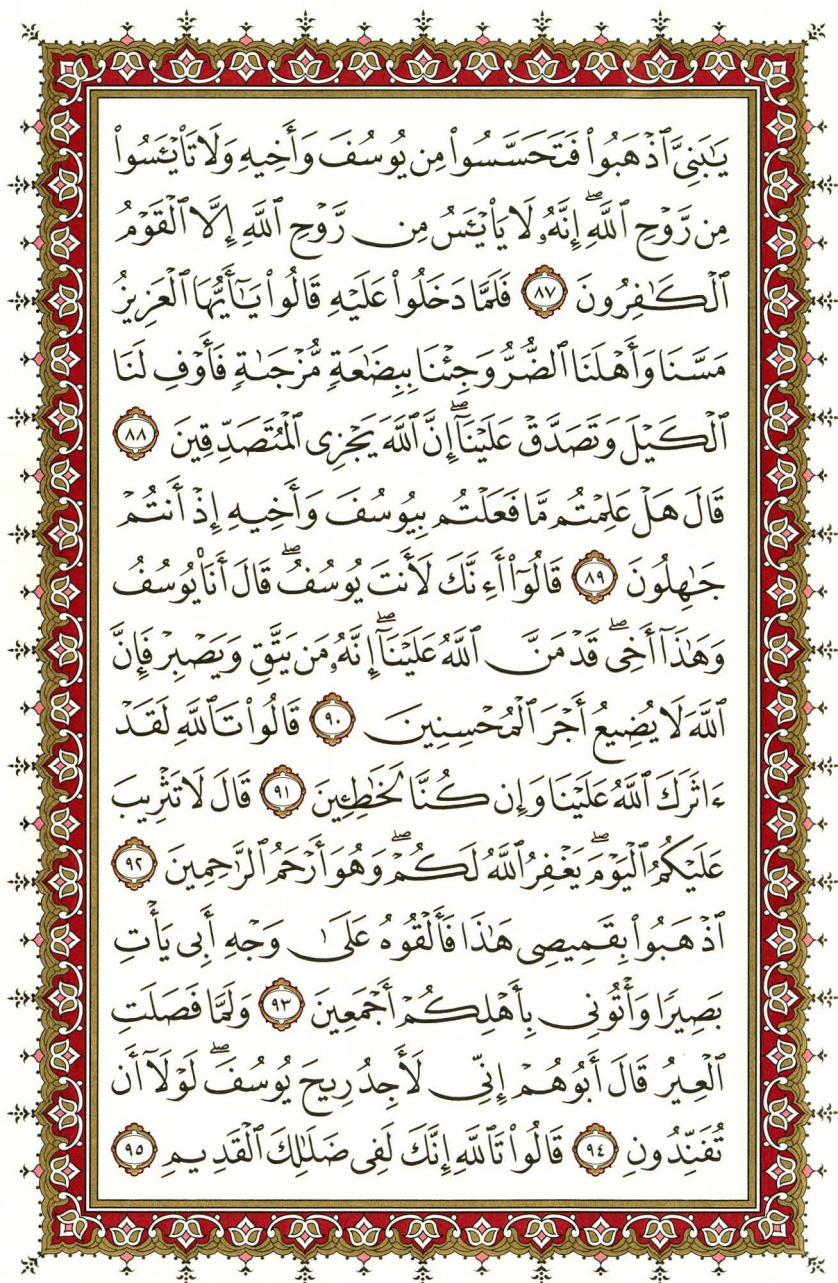 يَٰبَنِيَّ ٱذۡهَبُواْ فَتَحَسَّسُواْ مِن يُوسُفَ وَأَخِيهِ وَلَا تَاْيۡـَٔسُواْ
مِن رَّوۡحِ ٱللَّهِۖ إِنَّهُۥ لَا يَاْيۡـَٔسُ مِن رَّوۡحِ ٱللَّهِ إِلَّا ٱلۡقَوۡمُ
ٱلۡكَٰفِرُونَ ٨٧ فَلَمَّا دَخَلُواْ عَلَيۡهِ قَالُواْ يَٰٓأَيُّهَا ٱلۡعَزِيزُ
مَسَّنَا وَأَهۡلَنَا ٱلضُّرُّ وَجِئۡنَا بِبِضَٰعَةٖ مُّزۡجَىٰةٖ فَأَوۡفِ لَنَا
ٱلۡكَيۡلَ وَتَصَدَّقۡ عَلَيۡنَآۖ إِنَّ ٱللَّهَ يَجۡزِي ٱلۡمُتَصَدِّقِينَ ٨٨
قَالَ هَلۡ عَلِمۡتُم مَّا فَعَلۡتُم بِيُوسُفَ وَأَخِيهِ إِذۡ أَنتُمۡ
جَٰهِلُونَ ٨٩ قَالُوٓاْ أَءِنَّكَ لَأَنتَ يُوسُفُۖ قَالَ أَنَا۠ يُوسُفُ
وَهَٰذَآ أَخِيۖ قَدۡ مَنَّ ٱللَّهُ عَلَيۡنَآۖ إِنَّهُۥ مَن يَتَّقِ وَيَصۡبِرۡ فَإِنَّ
ٱللَّهَ لَا يُضِيعُ أَجۡرَ ٱلۡمُحۡسِنِينَ ٩٠ قَالُواْ تَٱللَّهِ لَقَدۡ
ءَاثَرَكَ ٱللَّهُ عَلَيۡنَا وَإِن كُنَّا لَخَٰطِـِٔينَ ٩١ قَالَ لَا تَثۡرِيبَ
عَلَيۡكُمُ ٱلۡيَوۡمَۖ يَغۡفِرُ ٱللَّهُ لَكُمۡۖ وَهُوَ أَرۡحَمُ ٱلرَّٰحِمِينَ ٩٢
ٱذۡهَبُواْ بِقَمِيصِي هَٰذَا فَأَلۡقُوهُ عَلَىٰ وَجۡهِ أَبِي يَأۡتِ
بَصِيرٗا وَأۡتُونِي بِأَهۡلِكُمۡ أَجۡمَعِينَ ٩٣ وَلَمَّا فَصَلَتِ
ٱلۡعِيرُ قَالَ أَبُوهُمۡ إِنِّي لَأَجِدُ رِيحَ يُوسُفَۖ لَوۡلَآ أَن
تُفَنِّدُونِ ٩٤ قَالُواْ تَٱللَّهِ إِنَّكَ لَفِي ضَلَٰلِكَ ٱلۡقَدِيمِ ٩٥